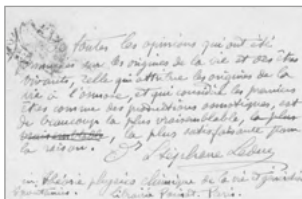 Toutes les opinions qui ont été
sur les origines de la vie et des êtres
vivants, celle qui attribue les origines de la
vie à l'osmose, et qui considère les premiers
êtres comme des productions osmotiques, est
de beaucoup la plus vraisemblable, la plus
vraisemblable, la plus satisfaisante pour
la raison. Dr Stéphane Leduc
in théorie physico chimique de la vie et générations
spontanées. Librairie Poinat, Paris.